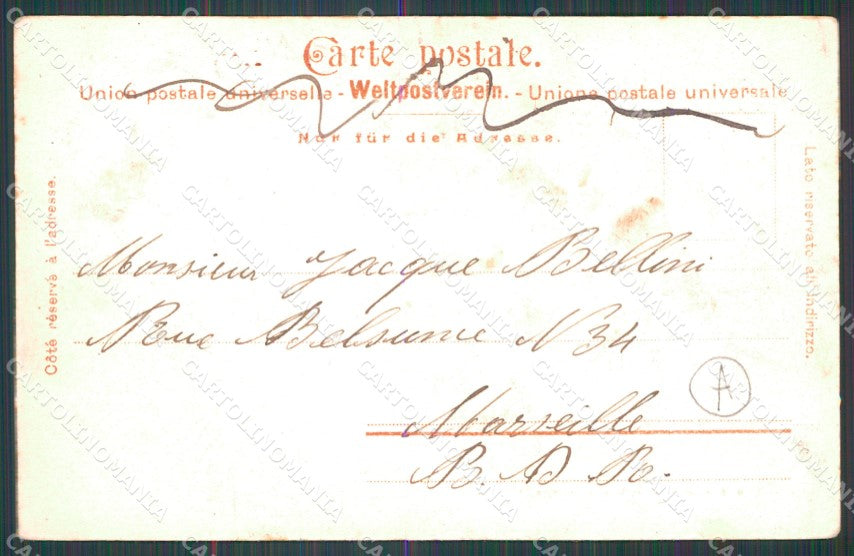 Carte postale.
Union postale universelle - Weltpostverein. - Unione postale universale
Nur für die Adresse.
Côté réservé à l'adresse.
Lato riservato all'indirizzo.
Monsieur Jacque Bellini
Rue Belsunce N 34
Marseille
B. D. R.
A
CARTOLINOMANIA